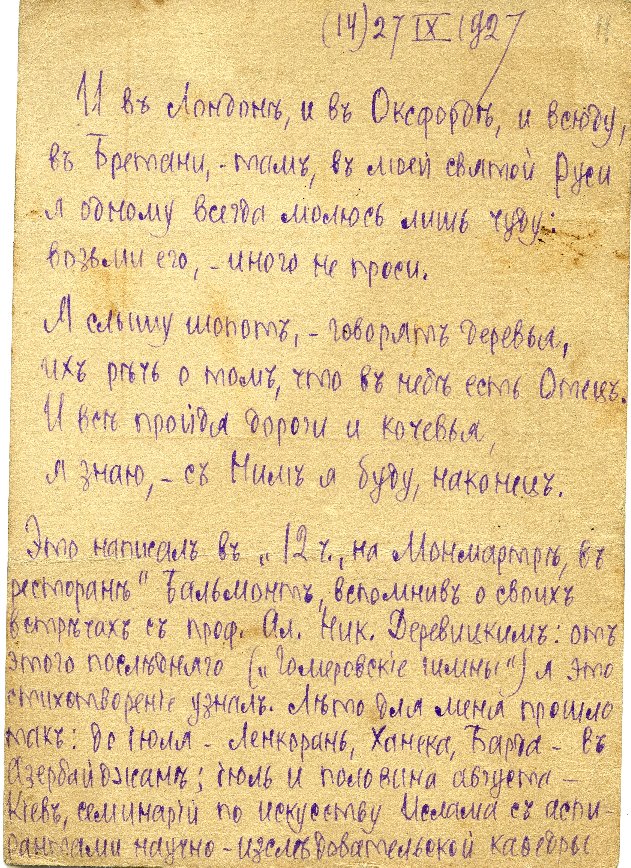 (14) 27 IX 1927
И въ Лондонѣ, и въ Оксфордѣ, и всюду,
въ Бретани, - тамъ, въ моей святой Руси
я одному всегда молюсь лишь чуду:
возьми его, - иного не проси.
Я слышу шопотъ, - говорятъ деревья,
ихъ рѣчь о томъ, что въ небѣ есть Отецъ.
И всѣ пройдя дороги и кочевья,
я знаю, - съ Нимъ я буду, наконецъ.
Это написалъ въ „12 ч., на Монмартрѣ, въ
ресторанѣ" Бальмонтъ, вспомнивъ о своихъ
встрѣчахъ съ проф. Ал. Ник. Деревицкимъ: отъ
этого послѣдняго („Гомеровскіе гимны") я это
стихотвореніе узналъ. Лѣто для меня прошло
такъ: до іюля - Ленкорань, Ханека, Барда - въ
Азербайджанѣ; іюль и половина августа -
Кіевъ, семинарій по искусству Ислама съ аспи-
рантами научно-изслѣдовательской кафедры